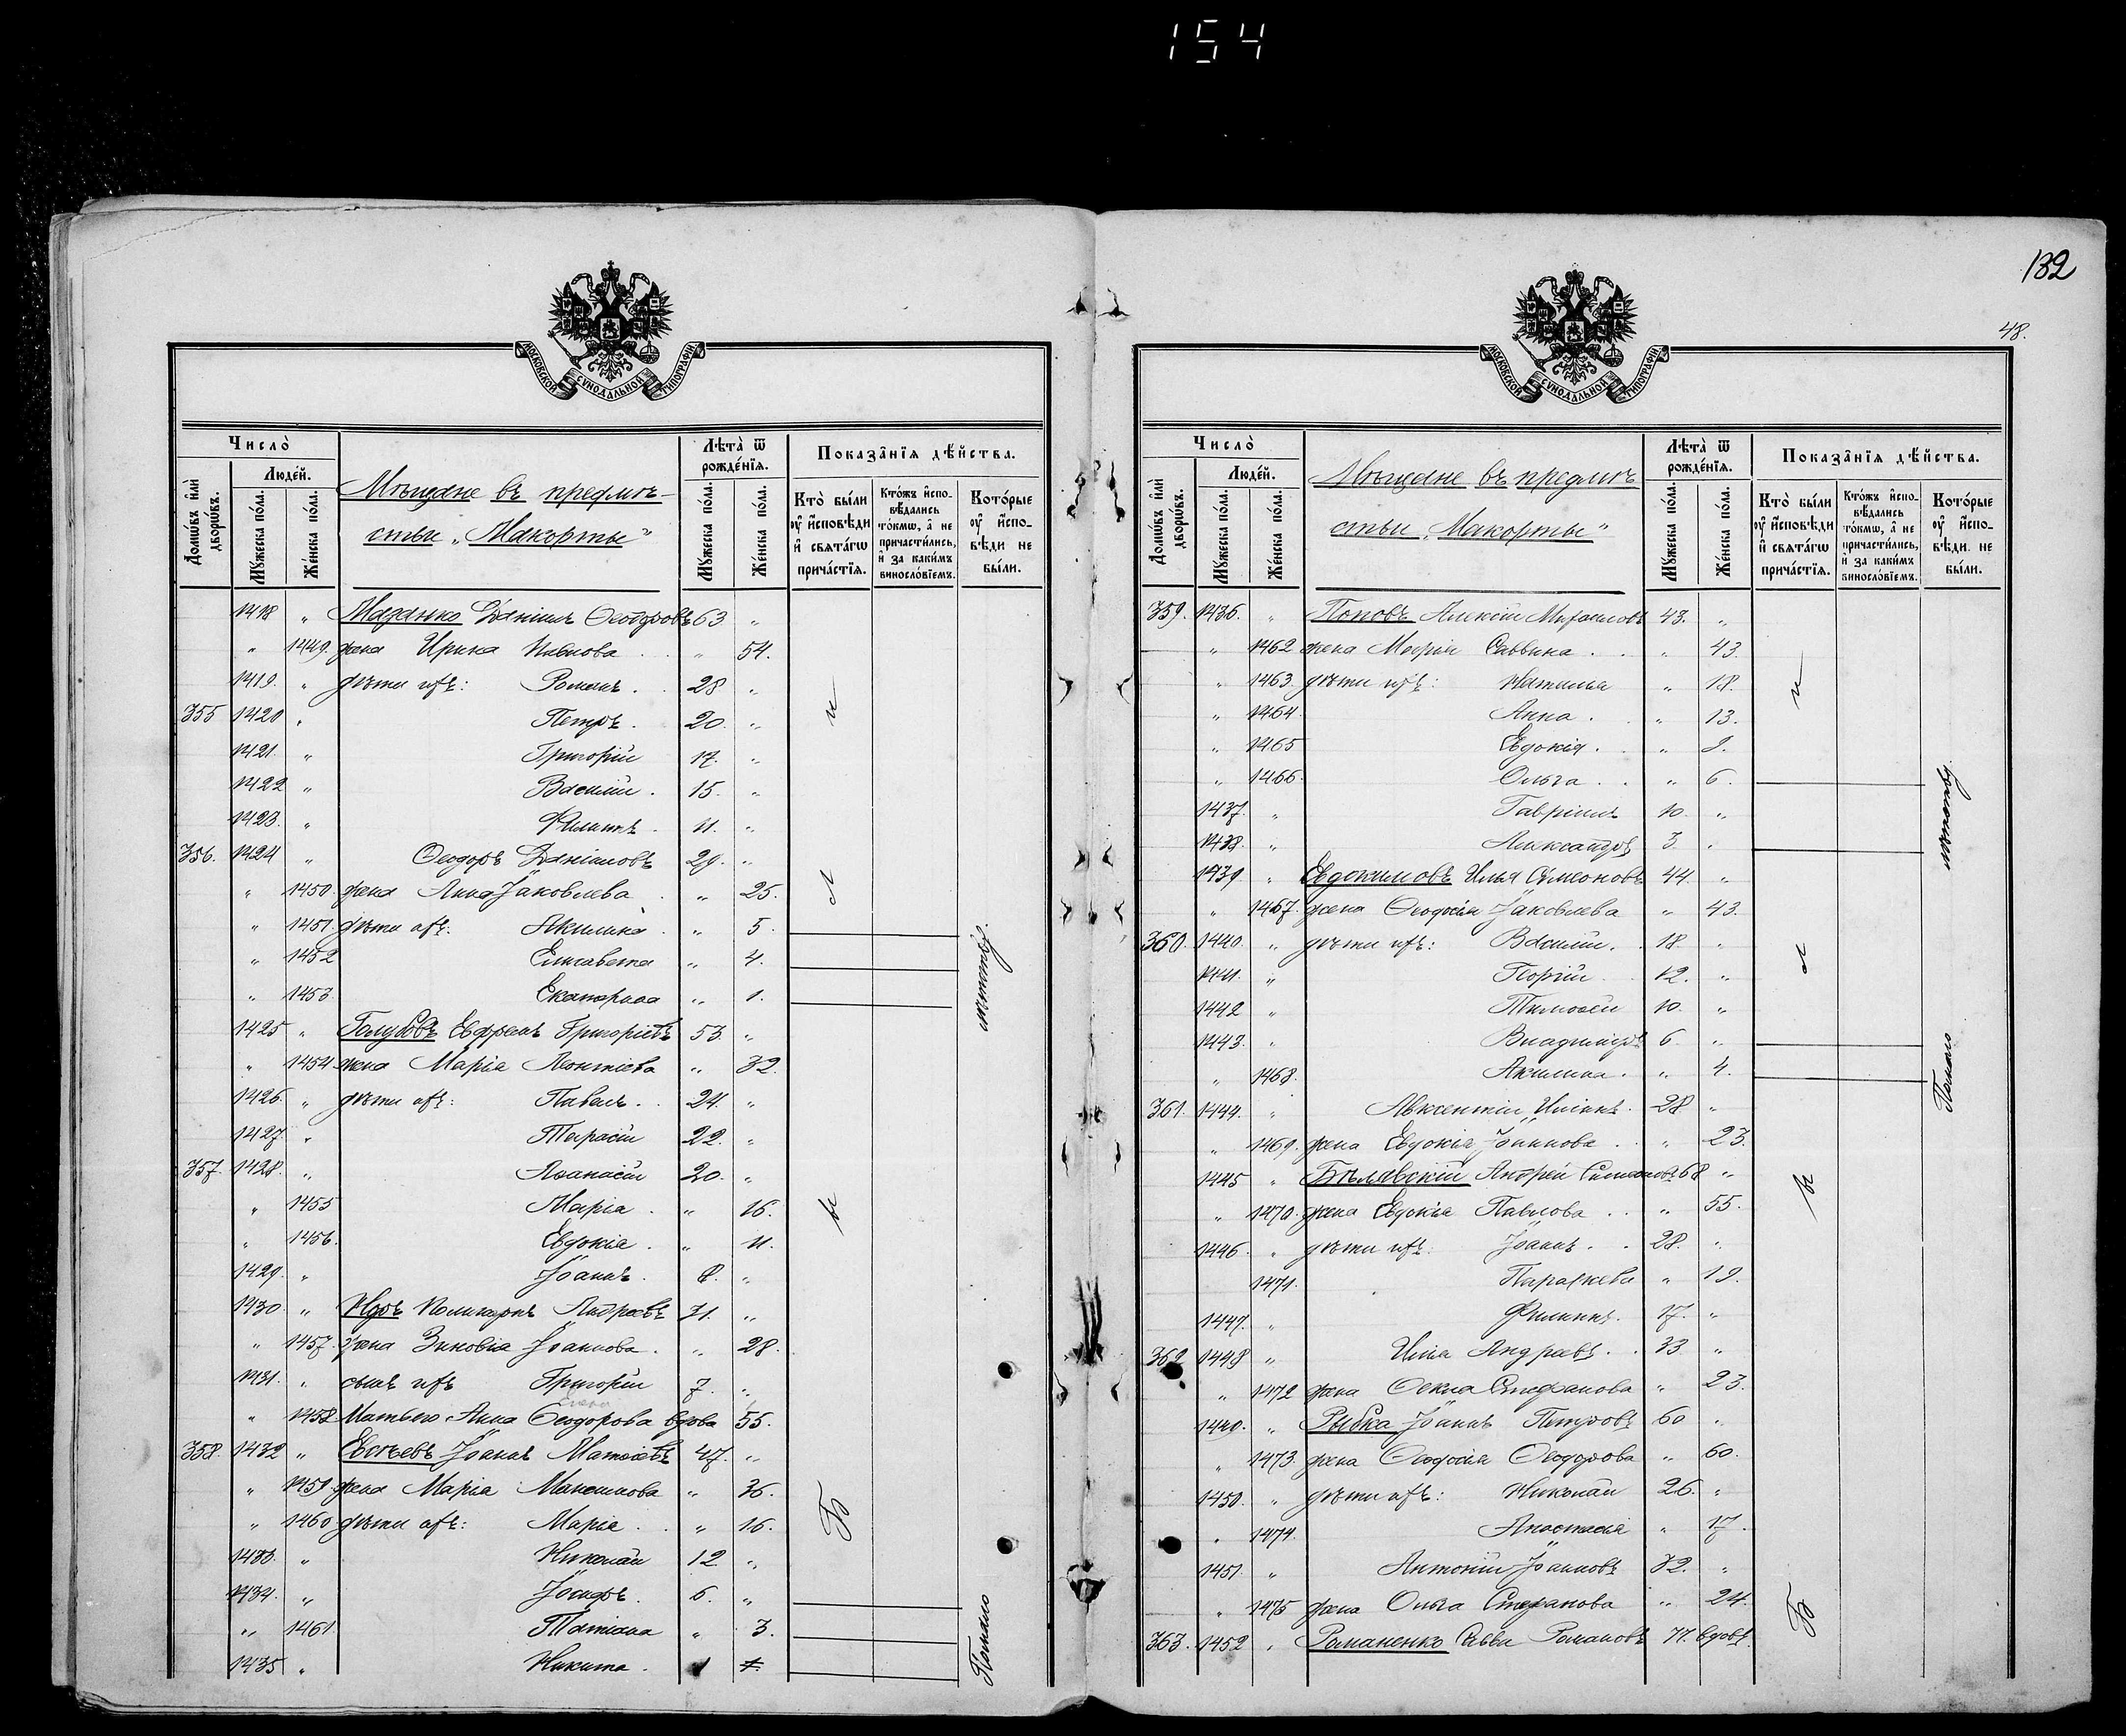 154
132
48.
МОСКОВСКОЙ СѴНОДАЛЬНОЙ ТИПОГРАФІИ
Число̀
Люде́й.
Домѡ́въ и҆лѝ дворѡ́въ.
Мꙋ́жеска по́ла.
Же́нска по́ла.
Мѣщане въ предмѣ-
стьи „Макорты"
Лѣта̀ ѿ рожде́нїѧ.
Мꙋ́жеска по́ла.
Же́нска по́ла.
Показа̑нїѧ дѣ́йства.
Кто̀ бы́ли ᲂу҆ и҆сповѣ́ди и҆ свѧта́гѡ прича́стїѧ.
Кто́жъ и҆спо-вѣ́дались то́кмѡ, а҆ не причасти́лись, и҆ за каки́мъ винослові́емъ.
Кото́рые ᲂу҆ и҆спо-вѣ́ди не бы́ли.
1418 „ Мазанко Даніилъ Ѳеодоровъ 63 „
„ 1449. жена Ирина Павлова „ 54.
1419. „ дѣти ихъ: Романъ. 28 „
355 1420 „ Петръ. 20. „
1421. „ Григорій 17. „
1422 „ Василій. 15. „
1423. „ Филиппъ. 11. „
356. 1424 „ Ѳеодоръ Даніиловъ 29. „
„ 1450. жена Анна Іаковлева „ 25.
„ 1451. дѣти ихъ: Акилина. „ 5.
„ 1452 Елисавета „ 4.
„ 1453. Екатерина „ 1.
1425 „ Голубовъ Ефремъ Григоріевъ 53. „
„ 1454 жена Марія Леонтіева „ 32.
1426. „ дѣти ихъ: Павелъ. 24. „
1427. „ Тарасій 22. „
357. 1428. „ Аѳанасій 20. „
„ 1455 Марія. „ 16.
„ 1456. Евдокія. „ 11.
1429. „ Іоаннъ. 8. „
1430. „ Поликарпъ Андреевъ 31. „
„ 1457. жена Зиновія Іоаннова. „ 28.
1431. „ сынъ ихъ Григорій 7. „
„ 1458 Мать его Анна Ѳеодорова вдова 55.
358. 1432 „ Евсѣевъ Іоаннъ Матѳіевъ 47. „
„ 1459. жена Марія „ 36.
„ 1460. дѣти ихъ: Марія. „ 16.
1433. „ Николай 12. „
1434. „ Іосифъ. 6. „
„ 1461. Татіана „ 3.
1435 „ Никита. 1
и л и Б
малолѣтству
Число̀
Люде́й.
Домѡ́въ и҆лѝ дворѡ́въ.
Мꙋ́жеска по́ла.
Же́нска по́ла.
Мѣщане въ предмѣ
стьи „Макорты"
Лѣта̀ ѿ рожде́нїѧ.
Мꙋ́жеска по́ла.
Же́нска по́ла.
Показа̑нїѧ дѣ́йства.
Кто̀ бы́ли ᲂу҆ и҆сповѣ́ди и҆ свѧта́гѡ прича́стїѧ.
Кто́жъ и҆спо-вѣ́дались то́кмѡ, а҆ не причасти́лись, и҆ за каки́мъ винослові́емъ.
Кото́рые ᲂу҆ и҆спо-вѣ́ди не бы́ли.
359. 1436. „ Поповъ Алексій Михаиловъ 43. „
„ 1462 жена Марія Саввина. „ 43.
„ 1463. дѣти ихъ: Наталья „ 18.
„ 1464. Анна. „ 13.
„ 1465 Евдокія. „ 9.
„ 1466. Ольга. „ 6.
1437. „ Гавріилъ 10. „
1438. „ Александръ 3. „
1439 „ Евдокимовъ Илья Сѵмеоновъ 44. „
„ 1467. жена Ѳеодосія Іаковлева „ 43.
360. 1440. „ дѣти ихъ: Василій. 18. „
1441. „ Георгій. 12. „
1442 „ Тимоѳей 10. „
1443. „ Владиміръ 6. „
„ 1468. Акилина. „ 4.
361. 1444. „ Авксентій Ильинъ. 28 „
„ 1469. жена Евдокія Іоаннова. „ 23.
1445 „ Бѣлявскій Андрей 68 „
„ 1470. жена Евдокія Павлова. „ 55.
1446. „ дѣти ихъ: Іоаннъ. 28. „
1471. Параскева „ 19.
1447. „ Филиппъ. 17. „
362 1448 „ Илія Андреевъ. 33 „
„ 1472 жена Ѳекла Стефанова „ 23.
1449. „ Рыбка Іоаннъ Петровъ 60 „
„ 1473. жена Ѳеодосія Ѳеодорова „ 60.
1450. „ дѣти ихъ: Николай 26. „
„ 1474. Анастасія „ 17.
1451. „ Антоній Іоанновъ 32. „
„ 1475 жена Ольга Стефанова „ 24.
363. 1452 „ Романенко Савва Романовъ 77. вдовъ
и л и Б